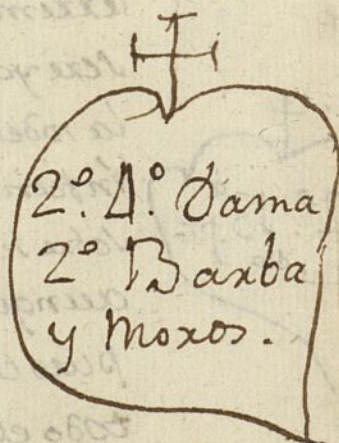 2º. 4º. Dama
2º Barba
y Moros.